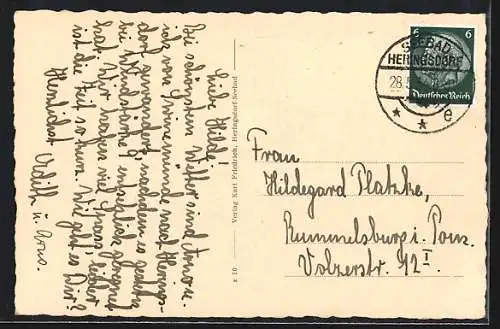 Liebe Hilde!
Bei schönstem Wetter sind Arno u.
ich von Swinemünde nach Herings-
dorf gewandert, nachdem es gestern
bei Windstärke 1 unheblich geregnet
hat. Wir haben viel Spass, leider
ist die Zeit so kurz. Wie geht es Dir?
Herzlichst Edith u. Arno.
z 10 — Verlag Karl Friedrich, Heringsdorf-Seebad
6 6
Deutsches Reich
SEEBAD
HERINGSDORF
28.
* * e
Frau
Hildegard Platzke,
Rummelsburg i. Pom.
Volzerstr. 12 I.